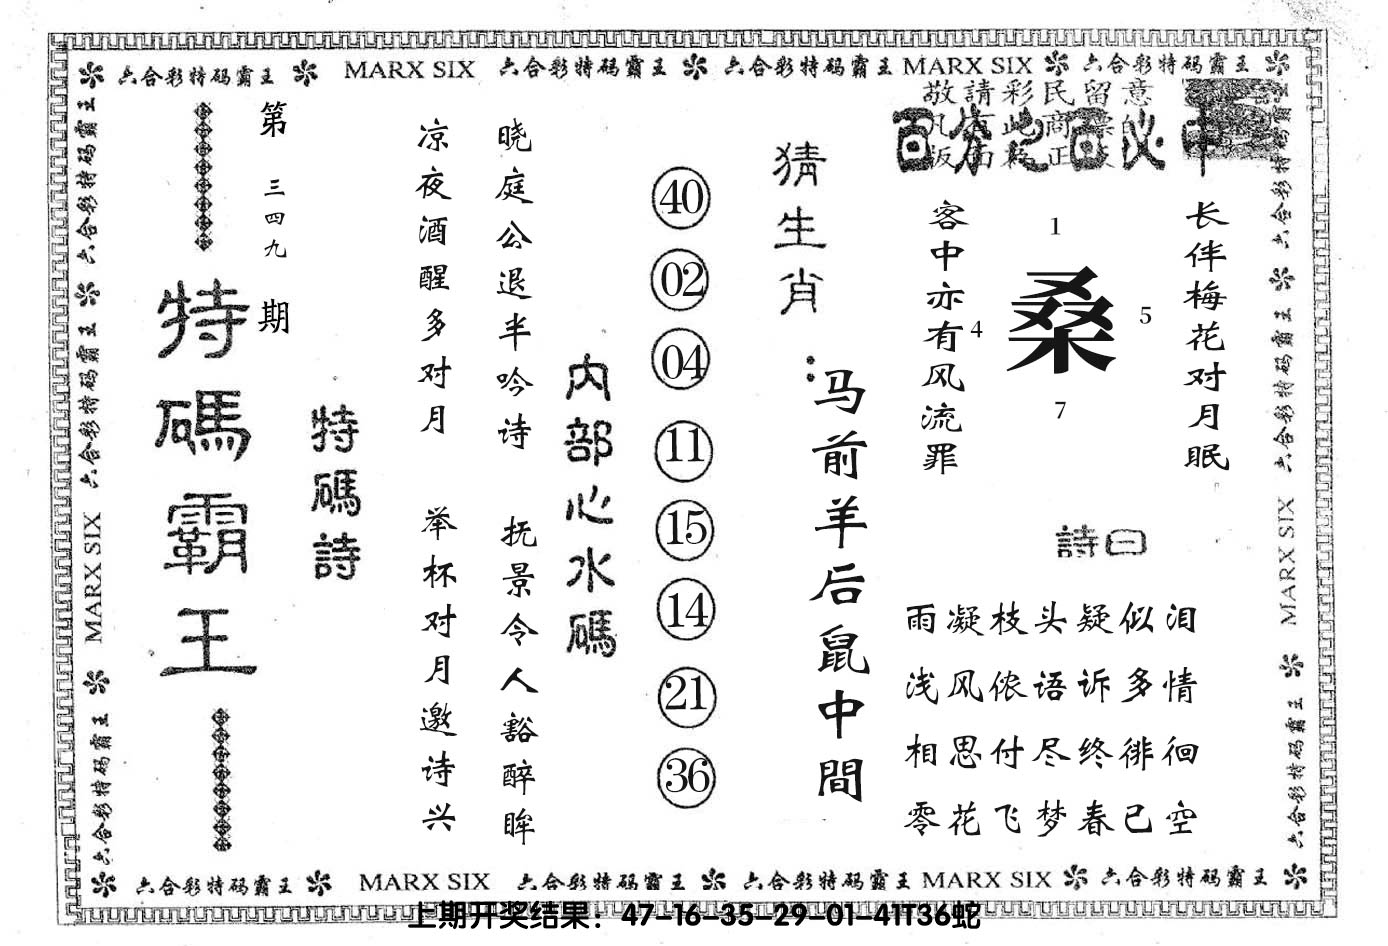 六合彩特码霸王 MARX SIX 六合彩特码霸王 六合彩特码霸王 MARX SIX 六合彩特码霸王
敬請彩民留意
百分之百必中
长伴梅花对月眠
客中亦有风流罪
1
4
桑
5
7
詩曰
雨凝枝头疑似泪
浅风侬语诉多情
相思付尽终徘徊
零花飞梦春已空
猜生肖:
马前羊后鼠中間
40
02
04
11
15
14
21
36
内部心水碼
晓庭公退半吟诗 抚景令人豁醉眸
凉夜酒醒多对月 举杯对月邀诗兴
特碼詩
第三四九期
特碼霸王
六合彩特码霸王 六合彩特码霸王 MARX SIX 六合彩特码霸王
六合彩特码霸王 六合彩特码霸王 MARX SIX 六合彩特码霸王
六合彩特码霸王 MARX SIX 六合彩特码霸王 六合彩特码霸王 MARX SIX 六合彩特码霸王
上期开奖结果：47-16-35-29-01-41T36蛇